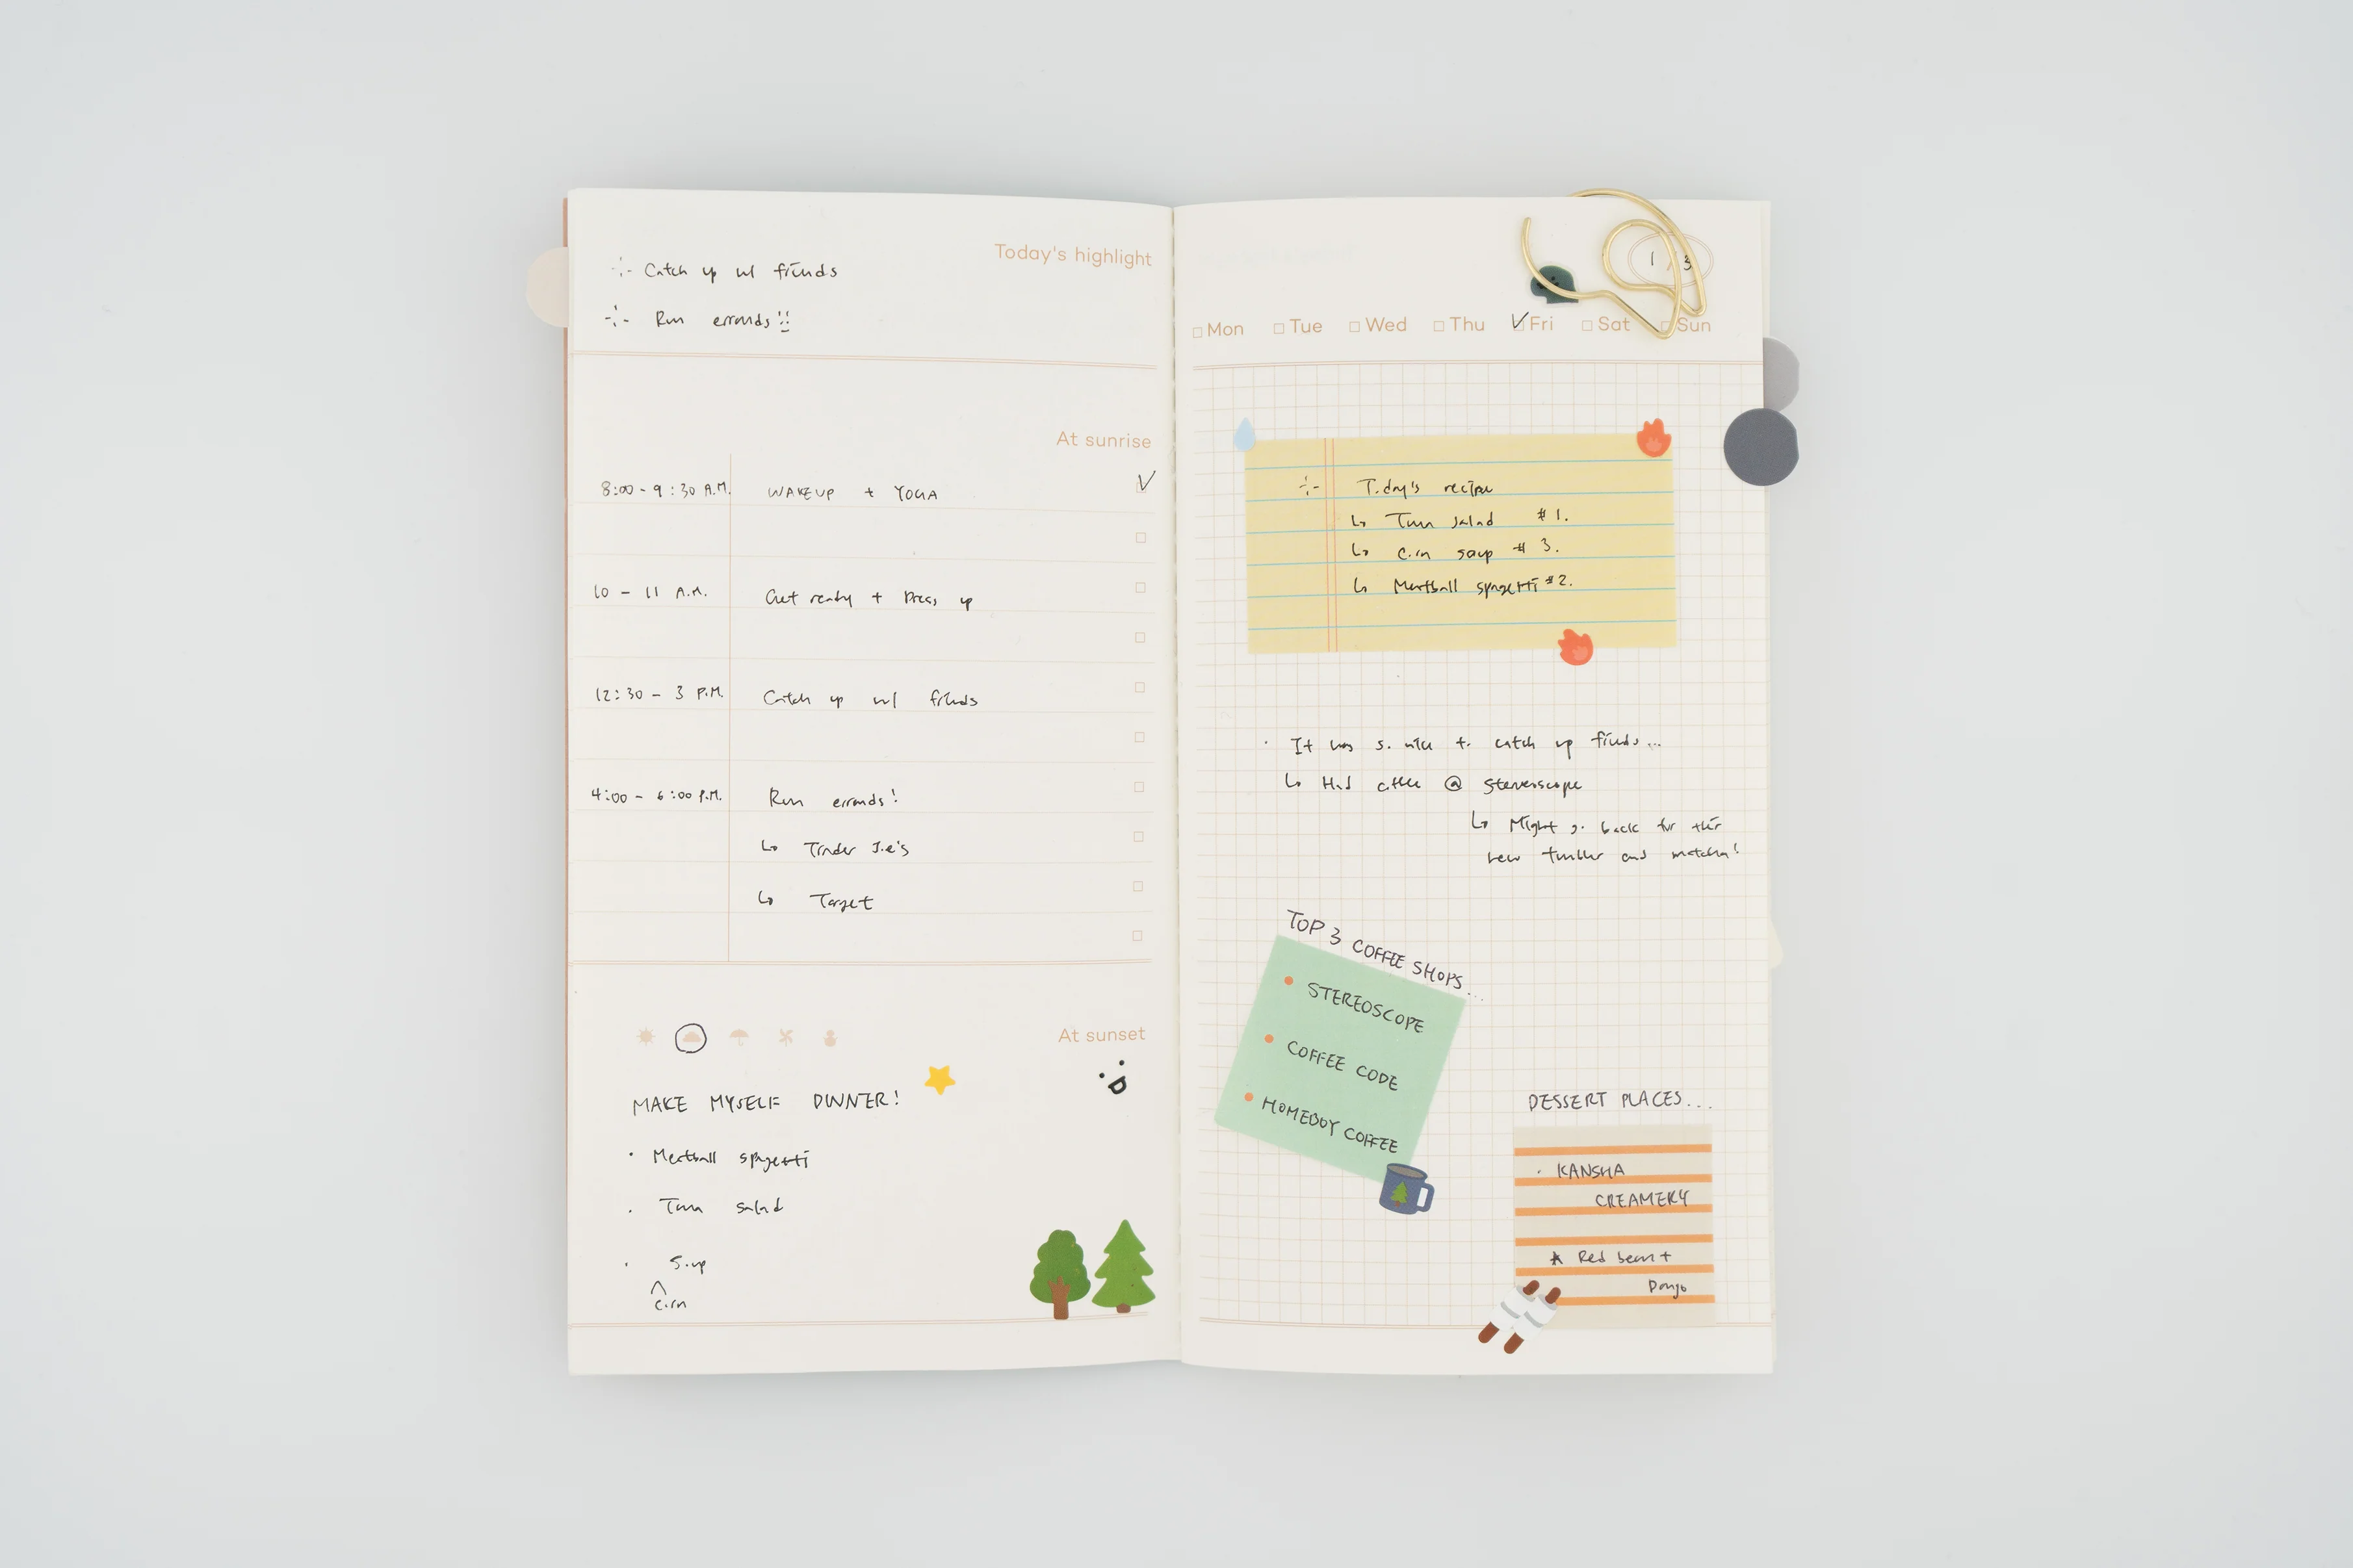 Today's highlight
Catch up w/ friends
Run errands!!
At sunrise
8:00 - 9:30 A.M. WAKEUP + YOGA
10 - 11 A.M. Get ready + Dress up
12:30 - 3 P.M. Catch up w/ friends
4:00 - 6:00 P.M. Run errands!
Trader Joe's
Target
At sunset
MAKE MYSELF DINNER!
Meatball spagetti
Tuna salad
Soup
corn
1 / 3
Mon Tue Wed Thu Fri Sat Sun
Today's recipe
Tuna salad #1.
Corn soup #3.
Meatball spagetti #2.
It was so nice to catch up friends...
Had coffee @ stereoscope
Might go back for their
new tumbler and matcha!
TOP 3 COFFEE SHOPS...
STEREOSCOPE
COFFEE CODE
HOMEBOY COFFEE
DESSERT PLACES...
KANSHA
CREAMERY
Red bean +
Dango